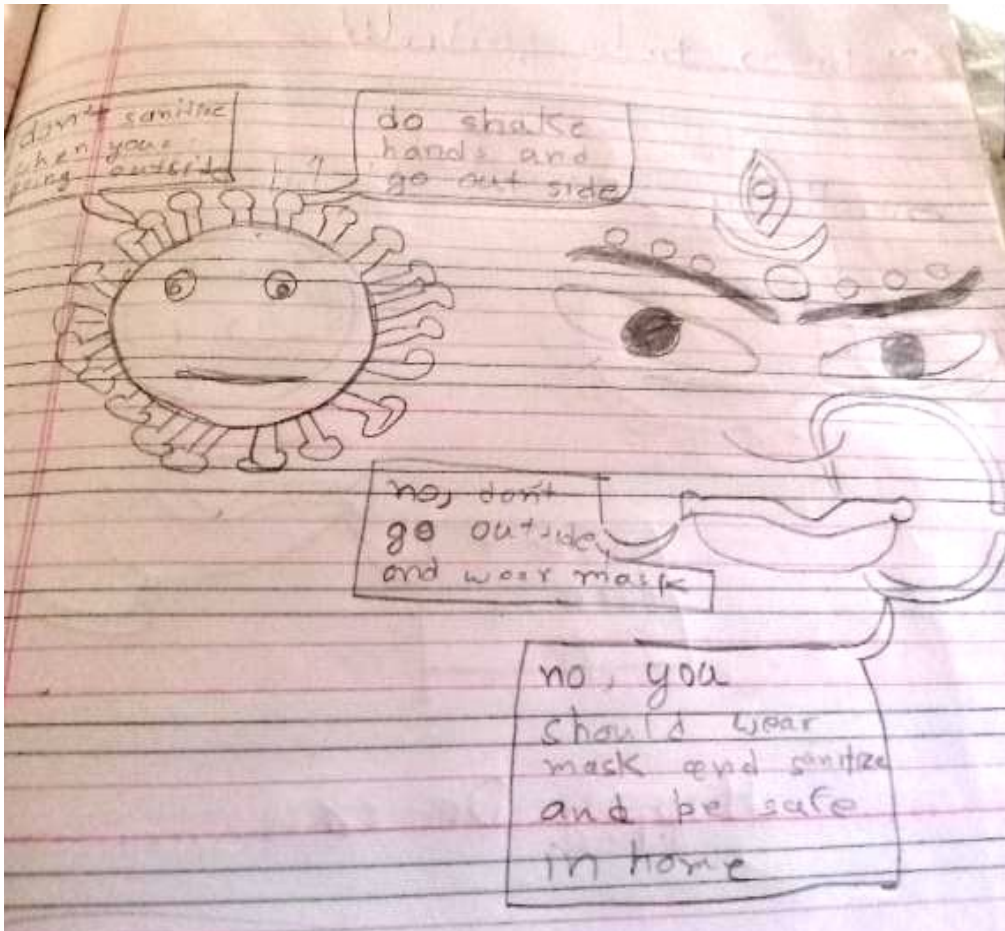 don't sanitize
when you
going outside
do shake
hands and
go out side
no, don't
go outside,
and wear mask
no, you
should wear
mask and sanitize
and be safe
in home